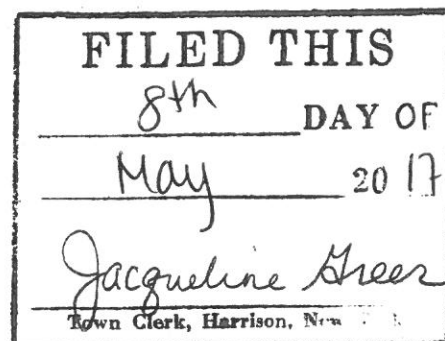 FILED THIS
8th DAY OF
May 20 17
Jacqueline Greer
Town Clerk, Harrison, New